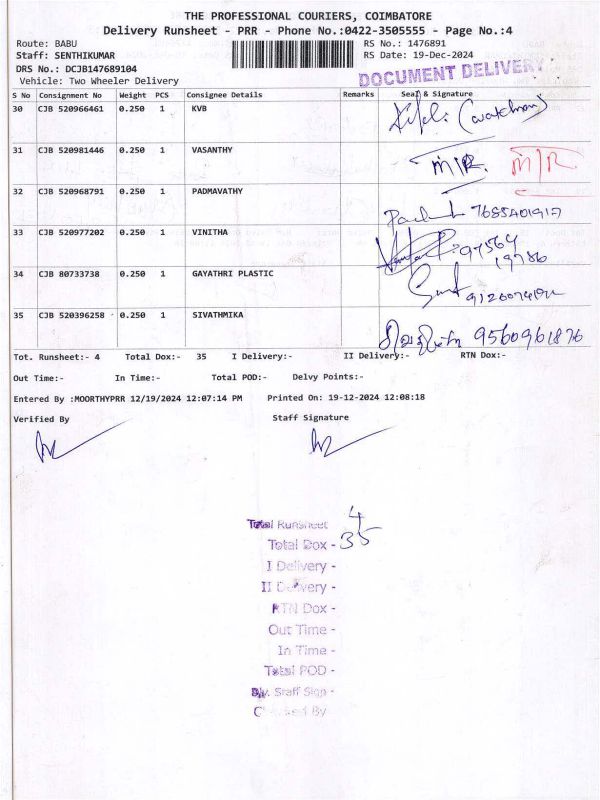 THE PROFESSIONAL COURIERS, COIMBATORE
Delivery Runsheet - PRR - Phone No.:0422-3505555 - Page No.:4
Route: BABU
RS No.: 1476891
Staff: SENTHIKUMAR
RS Date: 19-Dec-2024
DRS No.: DCJB147689104
Vehicle: Two Wheeler Delivery
DOCUMENT DELIVERY
S No Consignment No Weight PCS Consignee Details Remarks Seal & Signature
30 CJB 520966461 0.250 1 KVB (watchman)
31 CJB 520981446 0.250 1 VASANTHY M/R. M/R
32 CJB 520968791 0.250 1 PADMAVATHY
33 CJB 520977202 0.250 1 VINITHA 97564
19786
34 CJB 80733738 0.250 1 GAYATHRI PLASTIC
35 CJB 520396258 0.250 1 SIVATHMIKA 9560961876
Tot. Runsheet:- 4 Total Dox:- 35 I Delivery:- II Delivery:- RTN Dox:-
Out Time:- In Time:- Total POD:- Delvy Points:-
Entered By :MOORTHYPRR 12/19/2024 12:07:14 PM Printed On: 19-12-2024 12:08:18
Verified By Staff Signature
Total Runsheet 4
Total Dox - 35
I Delivery -
II Delivery -
RTN Dox -
Out Time -
In Time -
Total POD -
Dly. Staff Sign -
Checked By